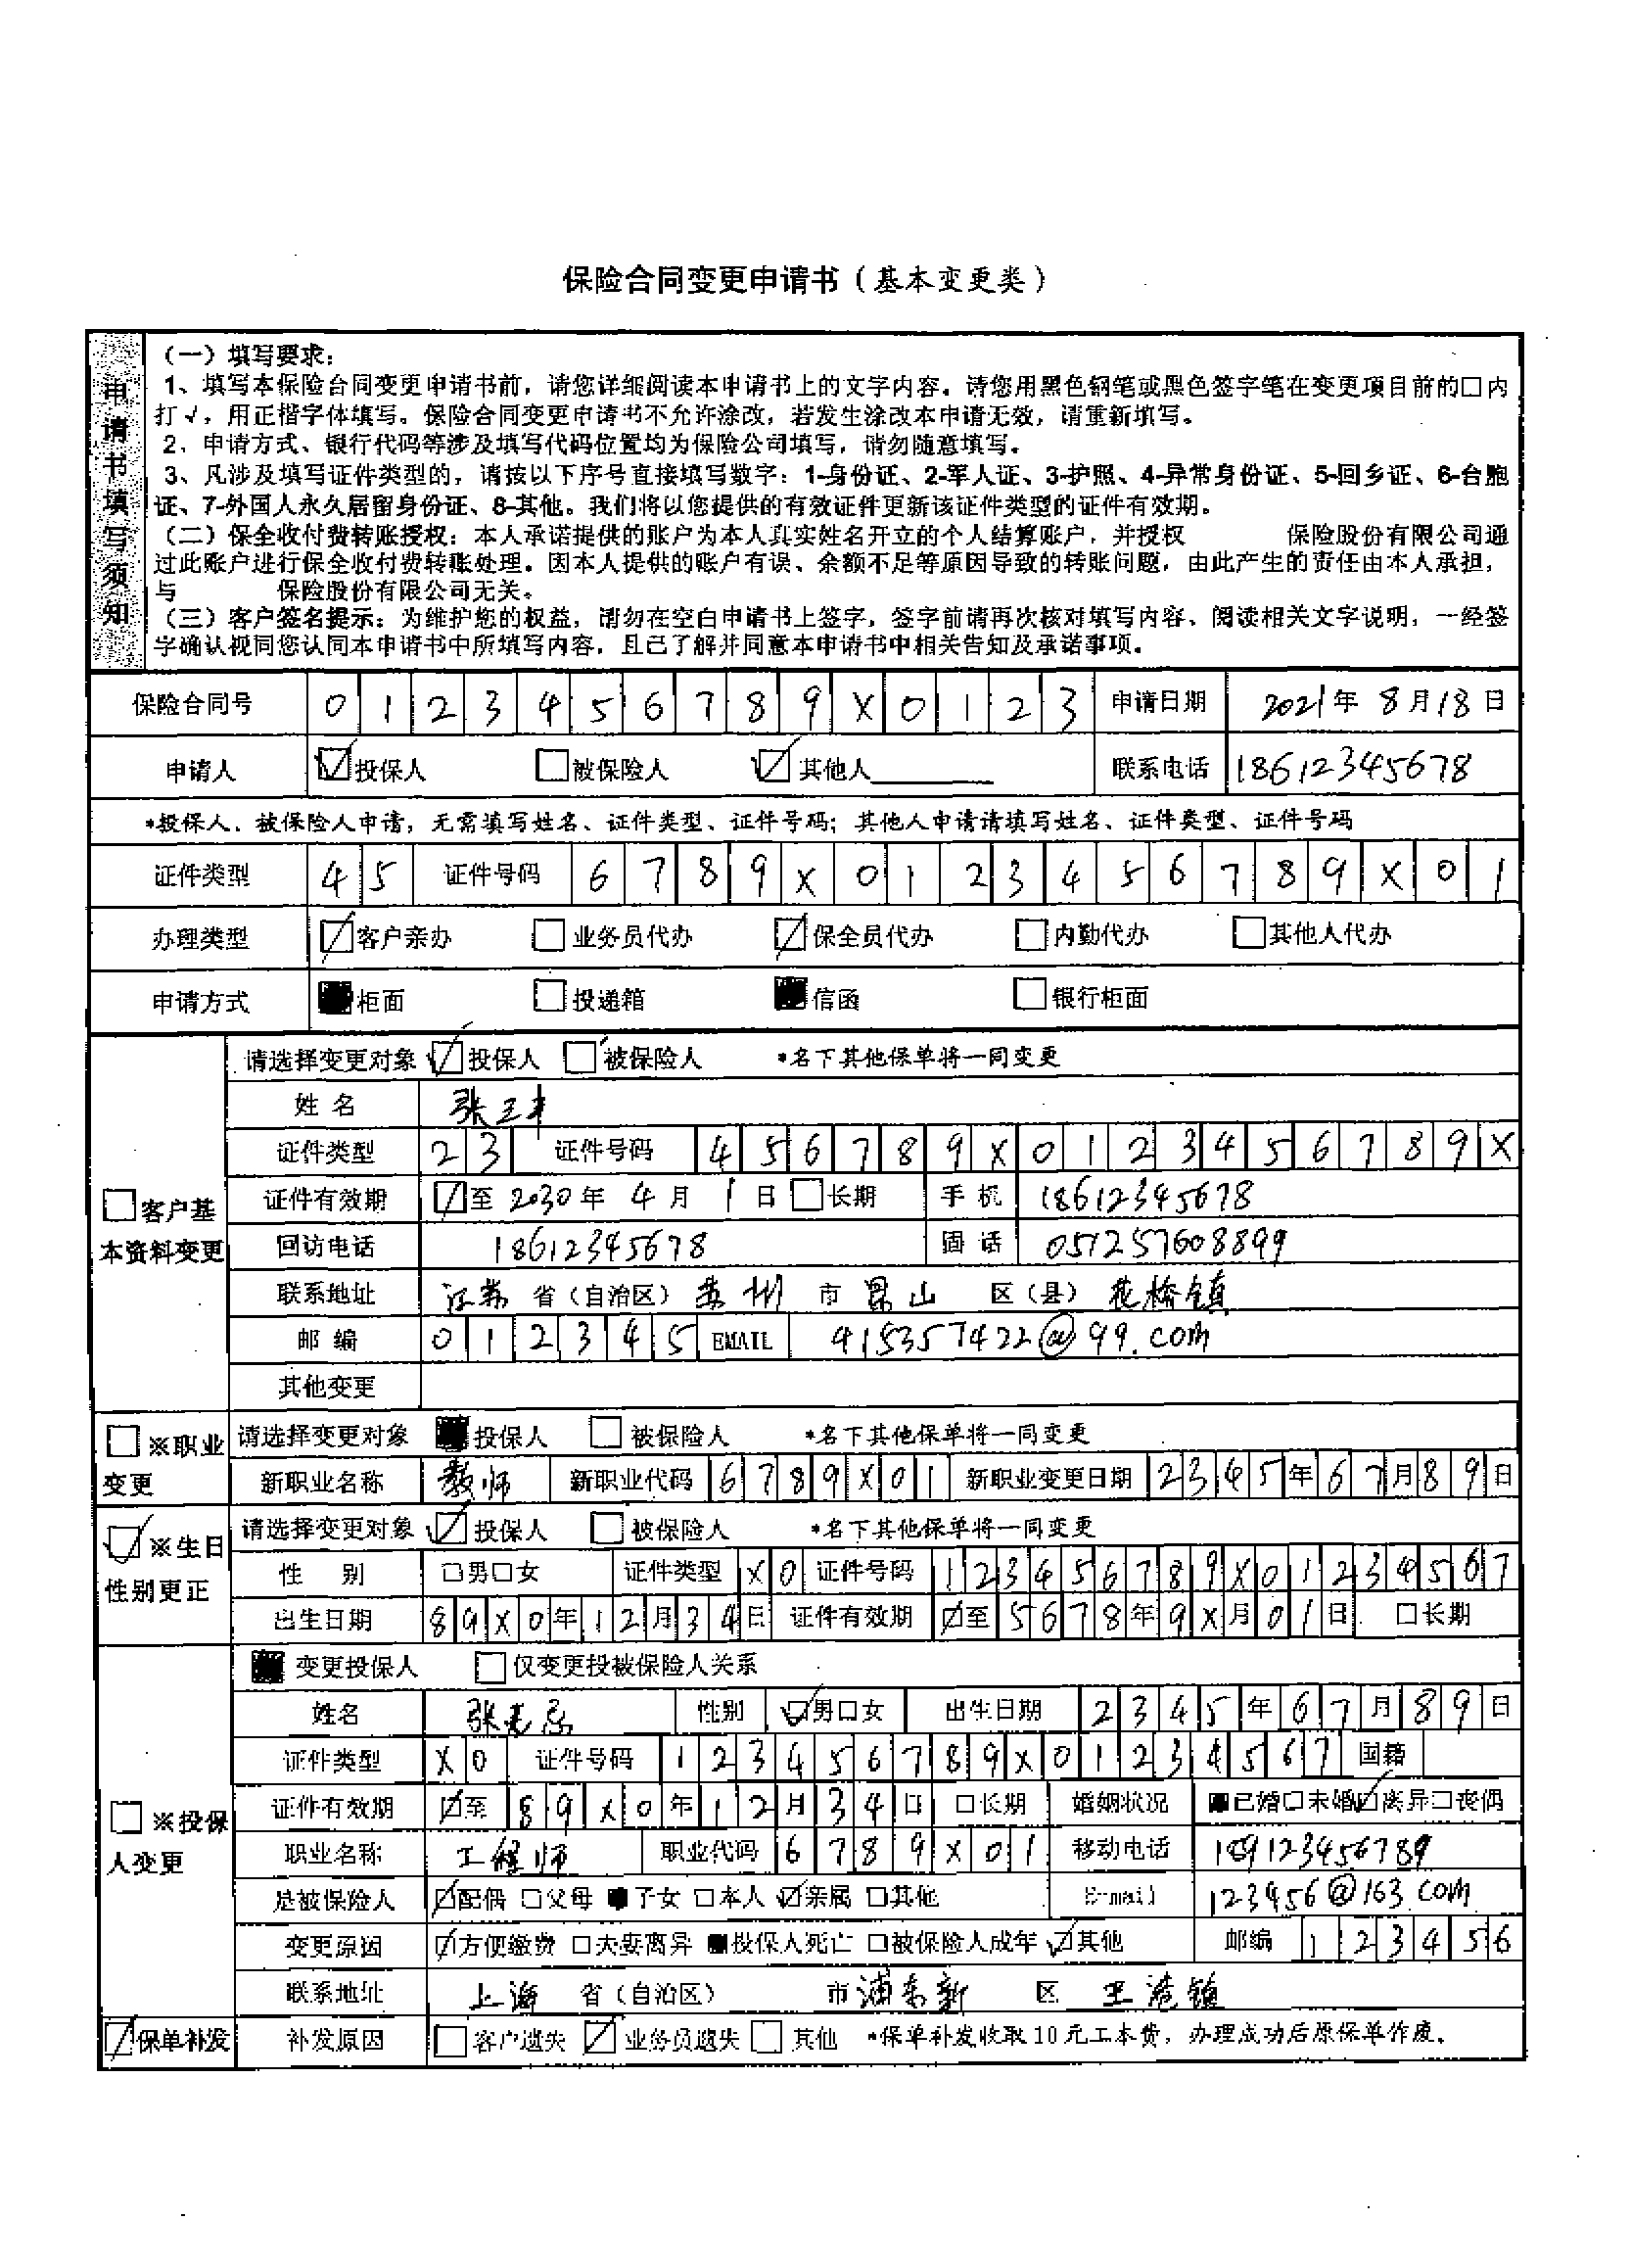 保险合同变更申请书（基本变更类）
申请书填写须知
（一）填写要求：
1、填写本保险合同变更申请书前，请您详细阅读本申请书上的文字内容。请您用黑色钢笔或黑色签字笔在变更项目前的□内
打√，用正楷字体填写。保险合同变更申请书不允许涂改，若发生涂改本申请无效，请重新填写。
2、申请方式、银行代码等涉及填写代码位置均为保险公司填写，请勿随意填写。
3、凡涉及填写证件类型的，请按以下序号直接填写数字：1-身份证、2-军人证、3-护照、4-异常身份证、5-回乡证、6-台胞
证、7-外国人永久居留身份证、8-其他。我们将以您提供的有效证件更新该证件类型的证件有效期。
（二）保全收付费转账授权：本人承诺提供的账户为本人真实姓名开立的个人结算账户，并授权 保险股份有限公司通
过此账户进行保全收付费转账处理。因本人提供的账户有误、余额不足等原因导致的转账问题，由此产生的责任由本人承担，
与 保险股份有限公司无关。
（三）客户签名提示：为维护您的权益，请勿在空白申请书上签字，签字前请再次核对填写内容、阅读相关文字说明，一经签
字确认视同您认同本申请书中所填写内容，且已了解并同意本申请书中相关告知及承诺事项。
保险合同号 0123456789X0123 申请日期 2021年8月18日
申请人 ☑投保人 □被保险人 ☑其他人 联系电话 18612345678
*投保人、被保险人申请，无需填写姓名、证件类型、证件号码；其他人申请请填写姓名、证件类型、证件号码
证件类型 45 证件号码 6789X0123456789X01
办理类型 ☑客户亲办 □业务员代办 ☑保全员代办 □内勤代办 □其他人代办
申请方式 ■柜面 □投递箱 ■信函 □银行柜面
□客户基本资料变更
请选择变更对象 ☑投保人 □被保险人 *名下其他保单将一同变更
姓名 张三丰
证件类型 23 证件号码 456789X0123456789X
证件有效期 ☑至2030年4月1日 □长期 手机 18612345678
回访电话 18612345678 固话 051257608899
联系地址 江苏 省（自治区） 苏州 市 昆山 区（县） 花桥镇
邮编 012345 EMAIL 415357422@qq.com
其他变更
□※职业变更
请选择变更对象 ■投保人 □被保险人 *名下其他保单将一同变更
新职业名称 教师 新职业代码 6789X01 新职业变更日期 2345年67月89日
☑※生日性别更正
请选择变更对象 ☑投保人 □被保险人 *名下其他保单将一同变更
性别 □男□女 证件类型 X0 证件号码 123456789X01234567
出生日期 89X0年12月34日 证件有效期 ☑至5678年9X月01日 □长期
□※投保人变更
■变更投保人 □仅变更投被保险人关系
姓名 张 性别 ☑男□女 出生日期 2345年67月89日
证件类型 X0 证件号码 123456789X01234567 国籍
证件有效期 ☑至89X0年12月34日 □长期 婚姻状况 ■已婚□未婚☑离异□丧偶
职业名称 工程师 职业代码 6789X01 移动电话 189123456789
是被保险人 ☑配偶 □父母 ■子女 □本人 ☑亲属 □其他 E-mail 123456@163.com
变更原因 ☑方便缴费 □夫妻离异 ■投保人死亡 □被保险人成年 ☑其他 邮编 123456
联系地址 上海 省（自治区） 市 浦东新 区 王港镇
☑保单补发 补发原因 □客户遗失 ☑业务员遗失 □其他 *保单补发收取10元工本费，办理成功后原保单作废。